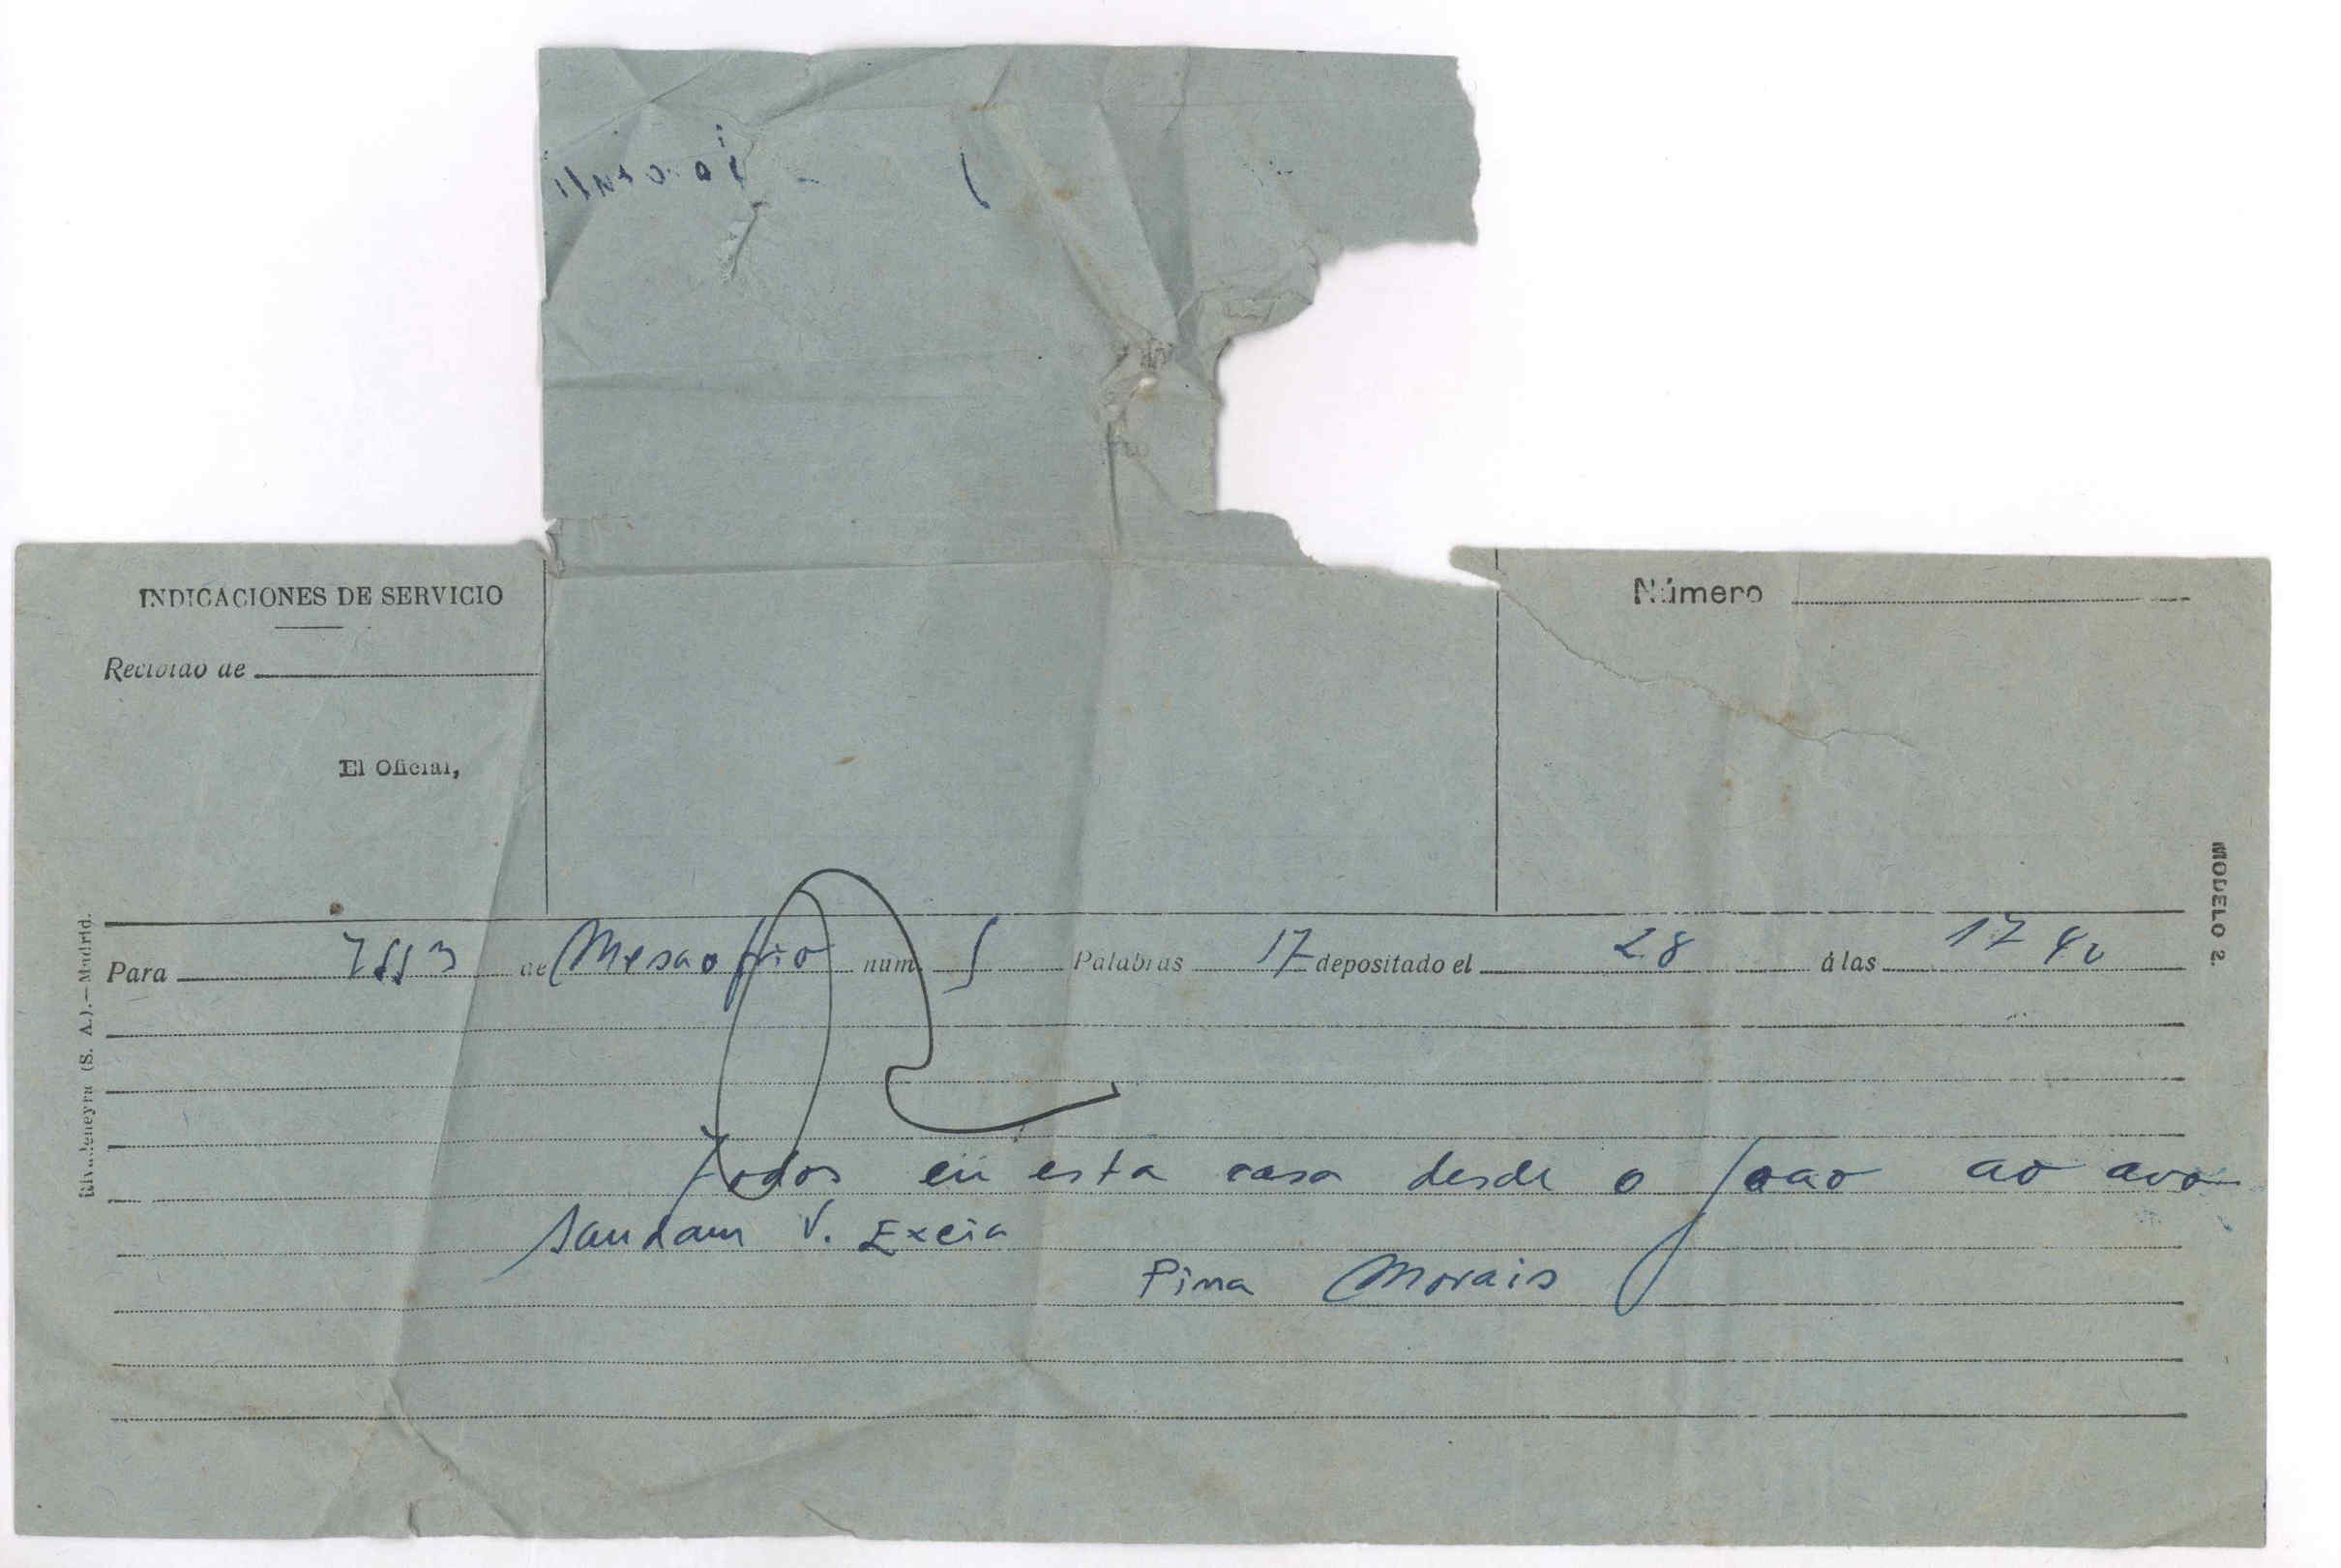 INDICACIONES DE SERVICIO
Número
Recibido de
El Oficial,
MODELO 2.
Rivadeneyra (S. A.).—Madrid.
Para de Mesao frio num. Palabras 17 depositado el 28 á las 17 40
Todos en esta casa desde o Joao ao avo
saudam V. Excia
Pina Morais